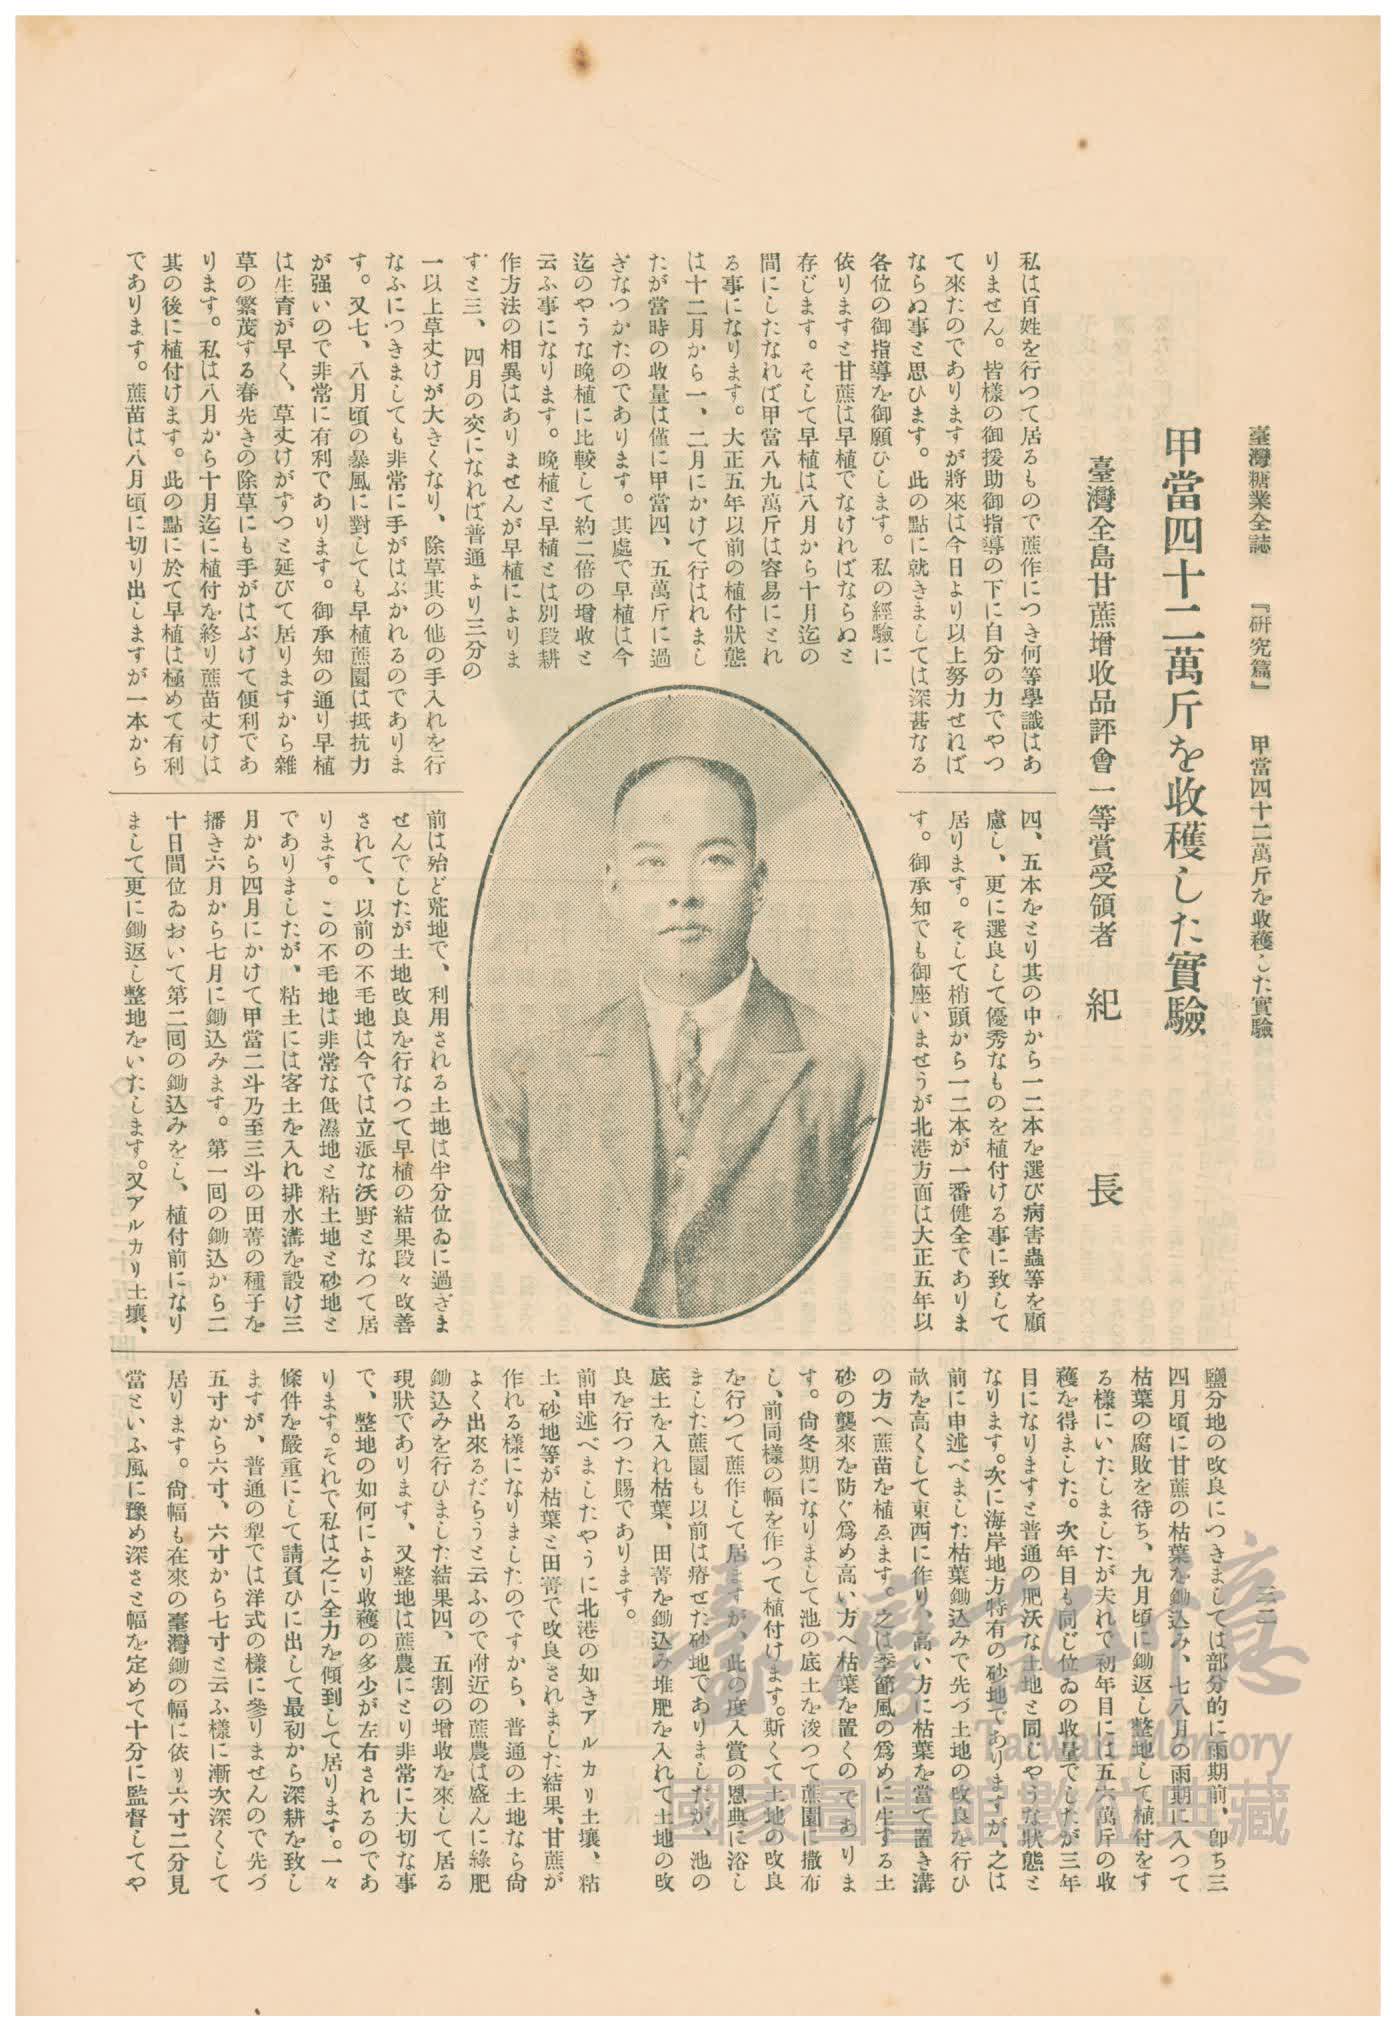 臺灣糖業全誌 『研究篇』 甲當四十二萬斤を收穫した實驗
三二
甲當四十二萬斤を收穫した實驗
臺灣全島甘蔗增收品評會一等賞受領者 紀 長
私は百姓を行つて居るもので蔗作につき何等學識はあ
りません。皆樣の御援助御指導の下に自分の力でやつ
て來たのでありますが將來は今日より以上努力せねば
ならぬ事と思ひます。此の點に就きましては深甚なる
各位の御指導を御願ひします。私の經驗に
依りますと甘蔗は早植でなければならぬと
存じます。そして早植は八月から十月迄の
間にしたなれば甲當八九萬斤は容易にとれ
る事になります。大正五年以前の植付狀態
は十二月から一、二月にかけて行はれまし
たが當時の收量は僅に甲當四、五萬斤に過
ぎなつかたのであります。其處で早植は今
迄のやうな晚植に比較して約二倍の增收と
云ふ事になります。晚植と早植とは別段耕
作方法の相異はありませんが早植によりま
すと三、四月の交になれば普通より三分の
一以上草丈けが大きくなり、除草其の他の手入れを行
なふにつきましても非常に手がはぶかれるのでありま
す。又七、八月頃の暴風に對しても早植蔗園は抵抗力
が强いので非常に有利であります。御承知の通り早植
は生育が早く、草丈けがずつと延びて居りますから雜
草の繁茂する春先きの除草にも手がはぶけて便利であ
ります。私は八月から十月迄に植付を終り蔗苗丈けは
其の後に植付けます。此の點に於て早植は極めて有利
であります。蔗苗は八月頃に切り出しますが一本から
四、五本をとり其の中から一二本を選び病害蟲等を顧
慮し、更に選良して優秀なものを植付ける事に致して
居ります。そして梢頭から一二本が一番健全でありま
す。御承知でも御座いませうが北港方面は大正五年以
前は殆ど荒地で、利用される土地は半分位ゐに過ぎま
せんでしたが土地改良を行なつて早植の結果段々改善
されて、以前の不毛地は今では立派な沃野となつて居
ります。この不毛地は非常な低濕地と粘土地と砂地と
でありましたが、粘土には客土を入れ排水溝を設け三
月から四月にかけて甲當二斗乃至三斗の田菁の種子を
播き六月から七月に鋤込みます。第一回の鋤込から二
十日間位ゐおいて第二回の鋤込みをし、植付前になり
まして更に鋤返し整地をいたします。又アルカリ土壤、
鹽分地の改良につきましては部分的に雨期前、卽ち三
四月頃に甘蔗の枯葉を鋤込み、七八月の雨期に入つて
枯葉の腐敗を待ち、九月頃に鋤返し整地して植付をす
る樣にいたしましたが夫れで初年目には五六萬斤の收
穫を得ました。次年目も同じ位ゐの收量でしたが三年
目になりますと普通の肥沃な土地と同じやうな狀態と
なります。次に海岸地方特有の砂地でありますが、之は
前に申述べました枯葉鋤込みで先づ土地の改良を行ひ
畝を高くして東西に作り、高い方に枯葉を當て置き溝
の方へ蔗苗を植ゑます。之は季節風の爲めに生する土
砂の襲來を防ぐ爲め高い方へ枯葉を置くのでありま
す。尙冬期になりまして池の底土を浚つて蔗園に撒布
し、前同樣の幅を作つて植付けます。斯くて土地の改良
を行つて蔗作して居ますが、此の度入賞の恩典に浴し
ました蔗園も以前は瘠せた砂地でありましたが、池の
底土を入れ枯葉、田菁を鋤込み堆肥を入れて土地の改
良を行つた賜であります。
前申述べましたやうに北港の如きアルカリ土壤、粘
土、砂地等が枯葉と田菁で改良されました結果、甘蔗が
作れる樣になりましたのですから、普通の土地なら尙
よく出來るだらうと云ふので附近の蔗農は盛んに綠肥
鋤込みを行ひました結果四、五割の增收を來して居る
現狀であります、又整地は蔗農にとり非常に大切な事
で、整地の如何により收穫の多少が左右されるのであ
ります。それで私は之に全力を傾到して居ります。一々
條件を嚴重にして請負ひに出して最初から深耕を致し
ますが、普通の犁では洋式の樣に參りませんので先づ
五寸から六寸、六寸から七寸と云ふ樣に漸次深くして
居ります。尙幅も在來の臺灣鋤の幅に依り六寸二分見
當といふ風に豫め深さと幅を定めて十分に監督してや
臺灣記憶
Taiwan Memory
國家圖書館數位典藏